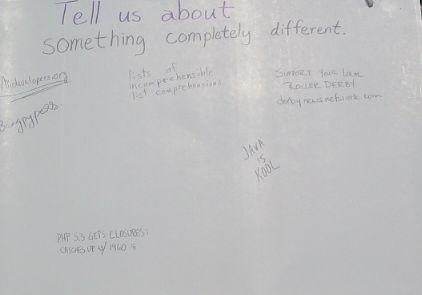 Tell us about
something completely different.
lists of
incomprehensible
list comprehensions
SUPPORT YOUR LOCAL
ROLLER DERBY
derbynewsnetwork.com
JAVA
IS
KOOL
PHP 5.3 GETS CLOSURES:
CATCHES UP W/ 1960's